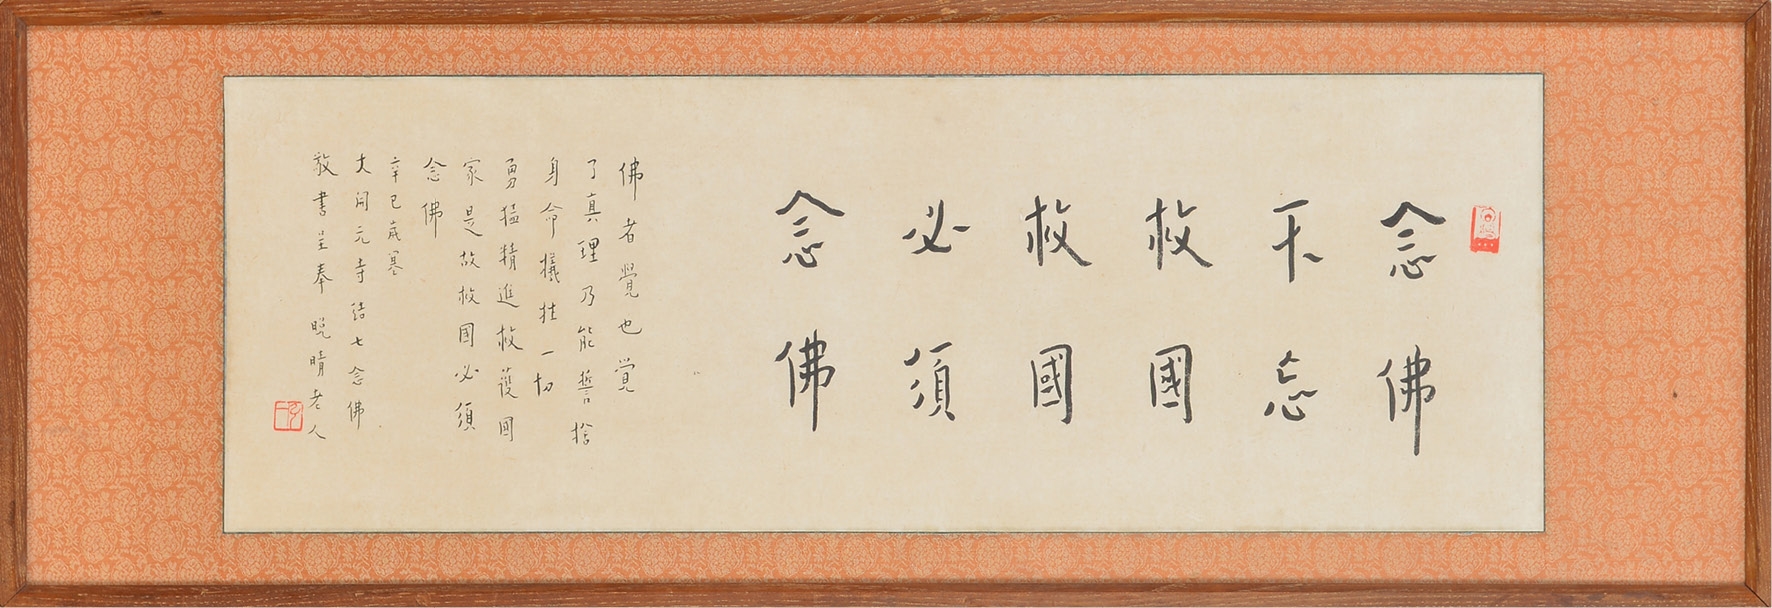 念佛
不忘
救國
救國
必須
念佛
佛者覺也覺
了真理乃能誓捨
身命犧牲一切
勇猛精進救護國
家是故救國必須
念佛
辛巳歲寒
大開元寺結七念佛
敬書呈奉晚晴老人